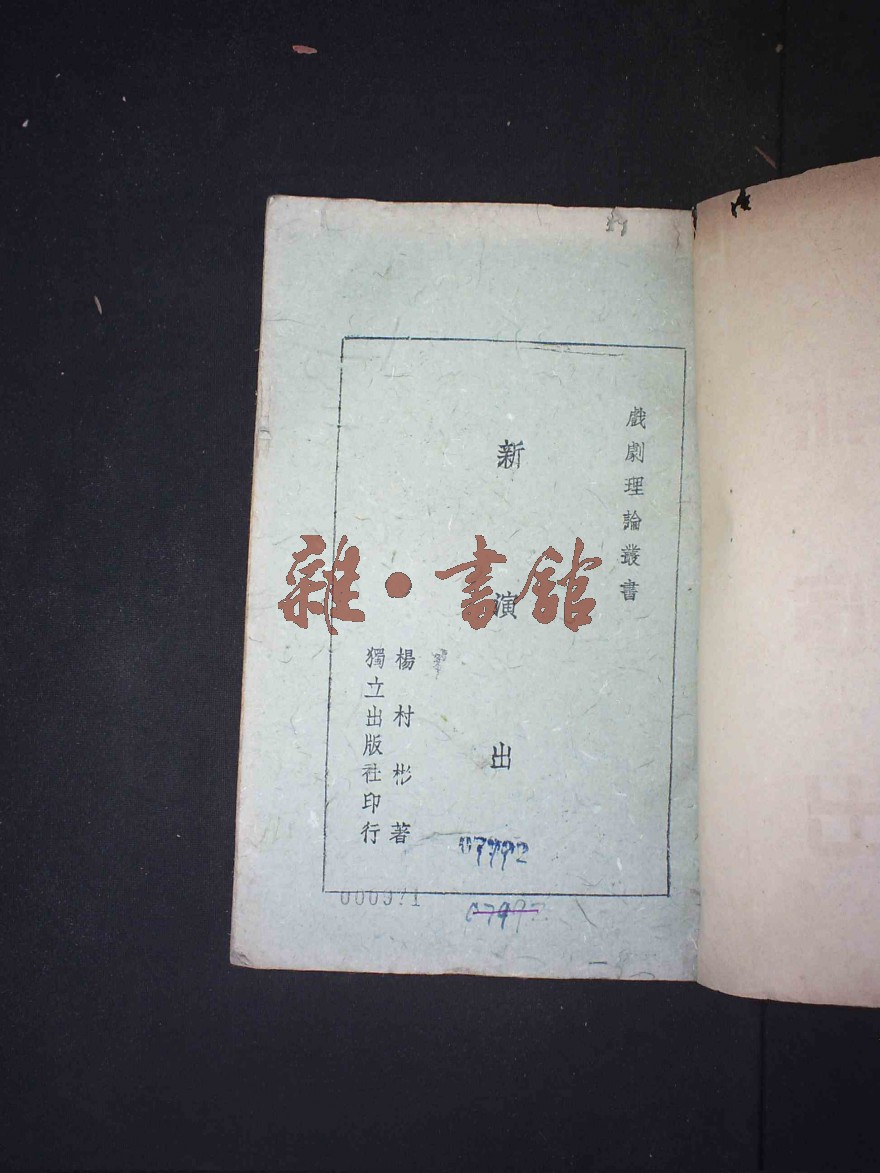 戲劇理論叢書
新演出
楊村彬著
獨立出版社印行
雜·書館
07992
000971